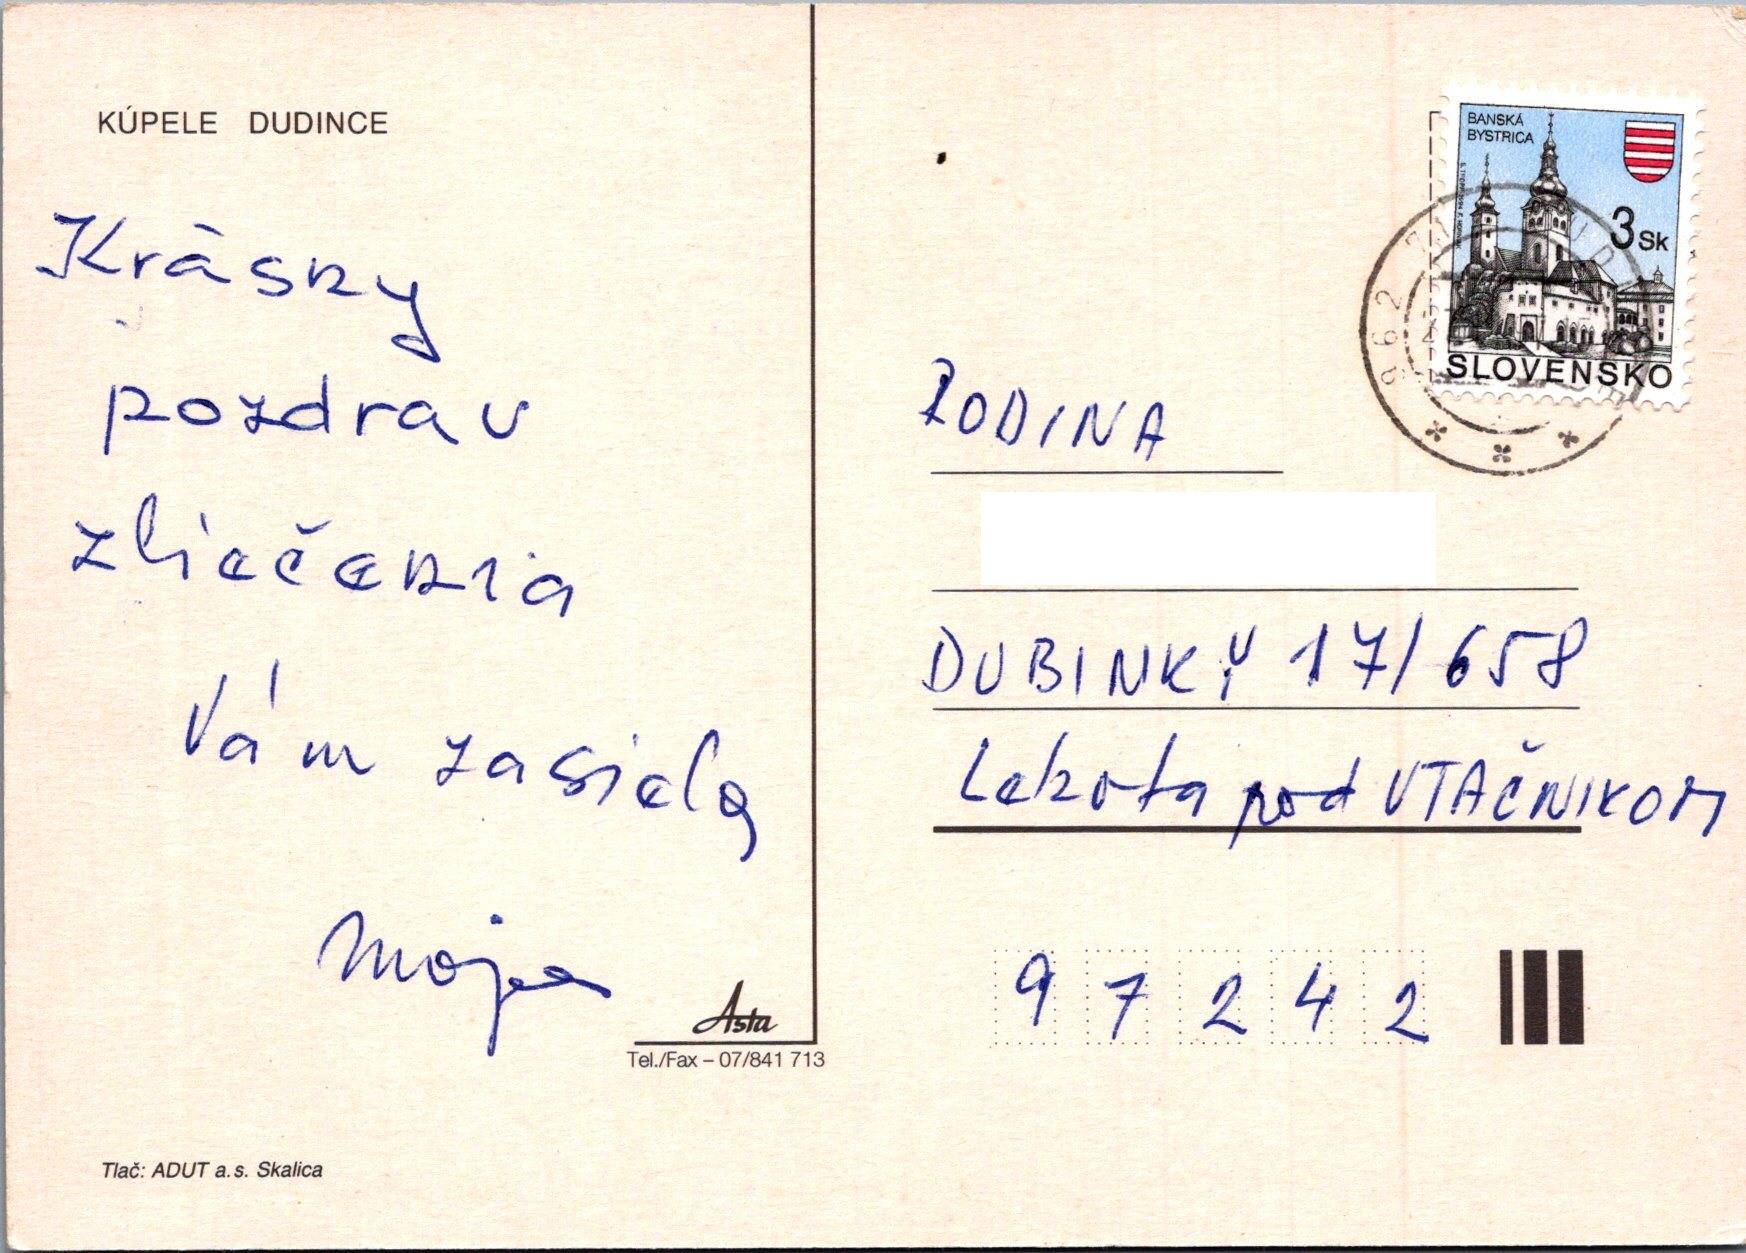 KÚPELE DUDINCE
Krásny
pozdrav
zliečenia
Vám zasiela
Asta
Tel./Fax – 07/841 713
Tlač: ADUT a.s. Skalica
BANSKÁ
BYSTRICA
3 Sk
SLOVENSKO
962
RODINA
DUBINKY 17/658
Lehota pod VTAČNIKOM
97242